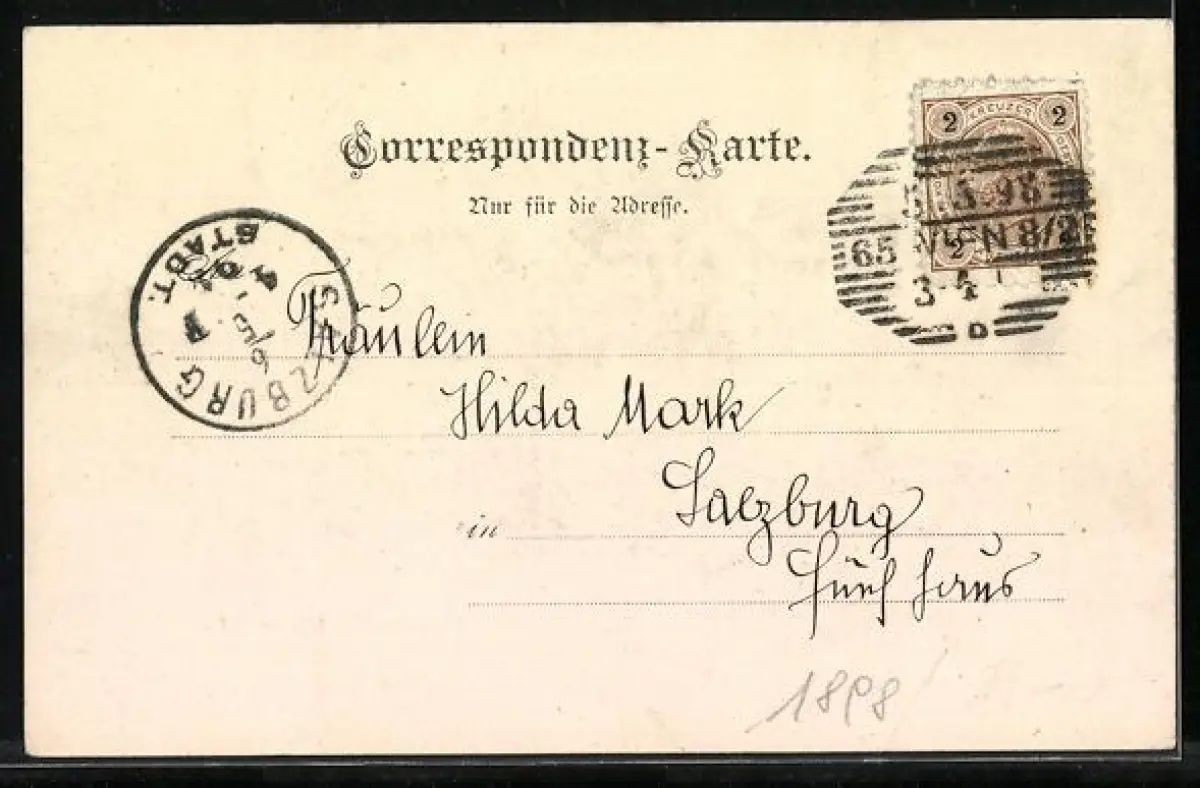 Correspondenz-Karte.
Nur für die Adresse.
2 KREUZER 2
2
5.5.98
65 WIEN 8/2
3-4
D
SALZBURG
STADT.
6/5
Fräulein
Hilda Mark
in Salzburg
haus
1898